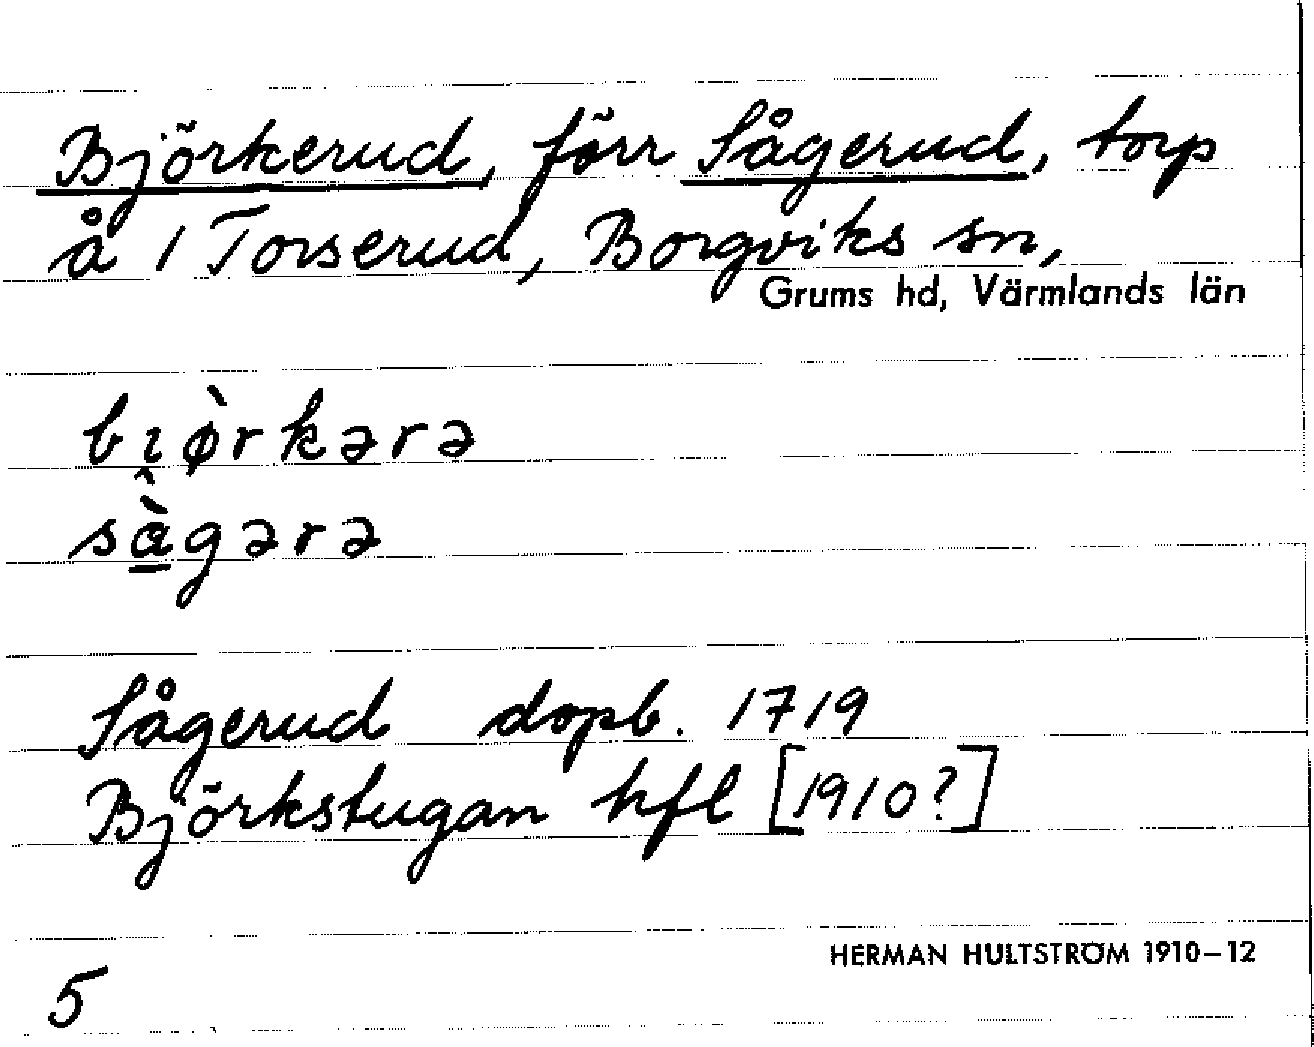 Björkerud, förr Sågerud, torp
å 1 Torserud, Borgviks sn,
Grums hd, Värmlands län
bı̯ø̀rkərə
sà̲gərə
Sågerud dopb. 1719
Björkstugan hfl [1910?]
HERMAN HULTSTRÖM 1910–12
5